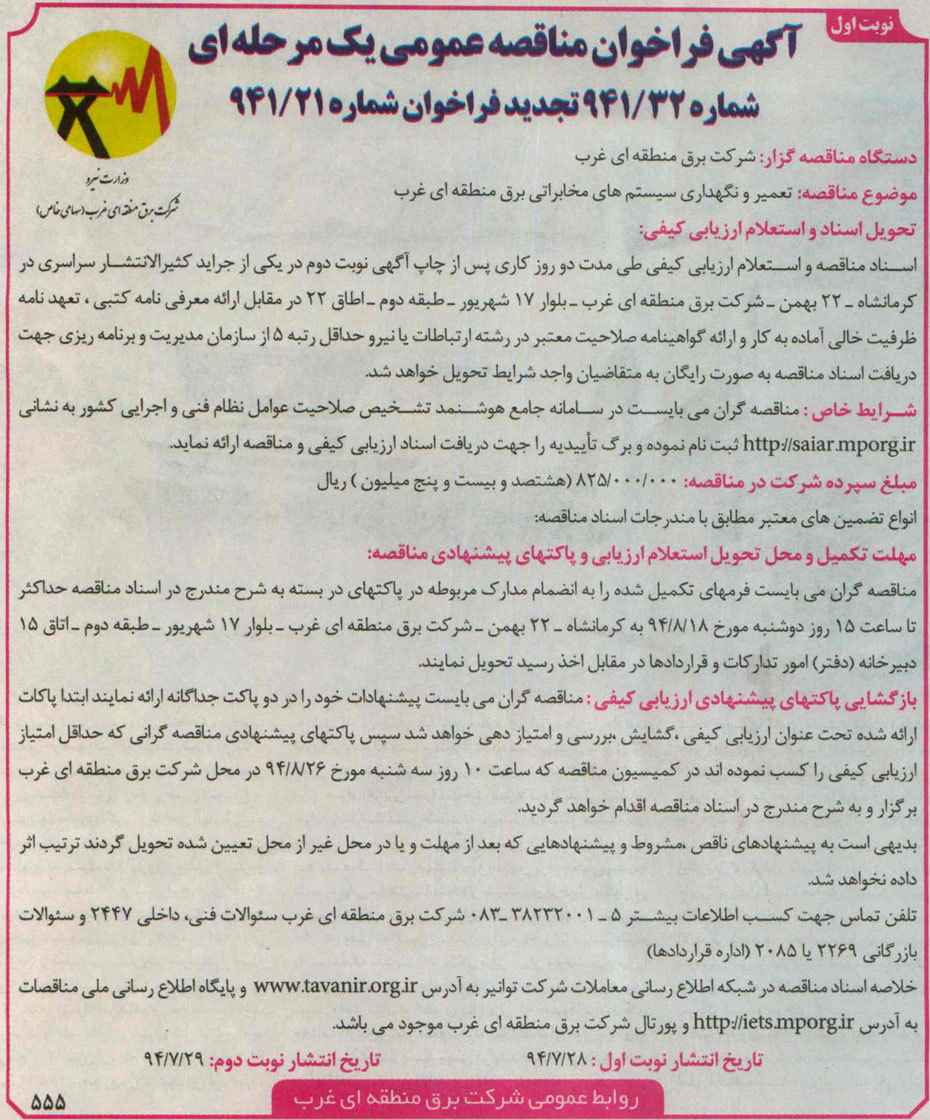 نوبت اول
آگهی فراخوان مناقصه عمومی یک مرحله ای
شماره ۹۴۱/۳۲ تجدید فراخوان شماره ۹۴۱/۲۱
وزارت نیرو
شرکت برق منطقه ای غرب (سهامی خاص)
دستگاه مناقصه گزار: شرکت برق منطقه ای غرب
موضوع مناقصه: تعمیر و نگهداری سیستم های مخابراتی برق منطقه ای غرب
تحویل اسناد و استعلام ارزیابی کیفی:
اسناد مناقصه و استعلام ارزیابی کیفی طی مدت دو روز کاری پس از چاپ آگهی نوبت دوم در یکی از جراید کثیرالانتشار سراسری در
کرمانشاه ـ ۲۲ بهمن ـ شرکت برق منطقه ای غرب ـ بلوار ۱۷ شهریور ـ طبقه دوم ـ اطاق ۲۲ در مقابل ارائه معرفی نامه کتبی ، تعهد نامه
ظرفیت خالی آماده به کار و ارائه گواهینامه صلاحیت معتبر در رشته ارتباطات یا نیرو حداقل رتبه ۵ از سازمان مدیریت و برنامه ریزی جهت
دریافت اسناد مناقصه به صورت رایگان به متقاضیان واجد شرایط تحویل خواهد شد.
شرایط خاص : مناقصه گران می بایست در سامانه جامع هوشنمد تشخیص صلاحیت عوامل نظام فنی و اجرایی کشور به نشانی
http://saiar.mporg.ir ثبت نام نموده و برگ تأییدیه را جهت دریافت اسناد ارزیابی کیفی و مناقصه ارائه نماید.
مبلغ سپرده شرکت در مناقصه: ۸۲۵/۰۰۰/۰۰۰ (هشتصد و بیست و پنج میلیون ) ریال
انواع تضمین های معتبر مطابق با مندرجات اسناد مناقصه:
مهلت تکمیل و محل تحویل استعلام ارزیابی و پاکتهای پیشنهادی مناقصه:
مناقصه گران می بایست فرمهای تکمیل شده را به انضمام مدارک مربوطه در پاکتهای در بسته به شرح مندرج در اسناد مناقصه حداکثر
تا ساعت ۱۵ روز دوشنبه مورخ ۹۴/۸/۱۸ به کرمانشاه ـ ۲۲ بهمن ـ شرکت برق منطقه ای غرب ـ بلوار ۱۷ شهریور ـ طبقه دوم ـ اتاق ۱۵
دبیرخانه (دفتر) امور تدارکات و قراردادها در مقابل اخذ رسید تحویل نمایند.
بازگشایی پاکتهای پیشنهادی ارزیابی کیفی : مناقصه گران می بایست پیشنهادات خود را در دو پاکت جداگانه ارائه نمایند ابتدا پاکات
ارائه شده تحت عنوان ارزیابی کیفی ،گشایش ،بررسی و امتیاز دهی خواهد شد سپس پاکتهای پیشنهادی مناقصه گرانی که حداقل امتیاز
ارزیابی کیفی را کسب نموده اند در کمیسیون مناقصه که ساعت ۱۰ روز سه شنبه مورخ ۹۴/۸/۲۶ در محل شرکت برق منطقه ای غرب
برگزار و به شرح مندرج در اسناد مناقصه اقدام خواهد گردید.
بدیهی است به پیشنهادهای ناقص ،مشروط و پیشنهادهایی که بعد از مهلت و یا در محل غیر از محل تعیین شده تحویل گردند ترتیب اثر
داده نخواهد شد.
تلفن تماس جهت کسب اطلاعات بیشتر ۵ ـ ۳۸۲۳۲۰۰۱ ـ۰۸۳ شرکت برق منطقه ای غرب سئوالات فنی، داخلی ۲۴۴۷ و سئوالات
بازرگانی ۲۲۶۹ یا ۲۰۸۵ (اداره قراردادها)
خلاصه اسناد مناقصه در شبکه اطلاع رسانی معاملات شرکت توانیر به آدرس www.tavanir.org.ir و پایگاه اطلاع رسانی ملی مناقصات
به آدرس http://iets.mporg.ir و پورتال شرکت برق منطقه ای غرب موجود می باشد.
تاریخ انتشار نوبت اول : ۹۴/۷/۲۸ تاریخ انتشار نوبت دوم: ۹۴/۷/۲۹
روابط عمومی شرکت برق منطقه ای غرب
۵۵۵